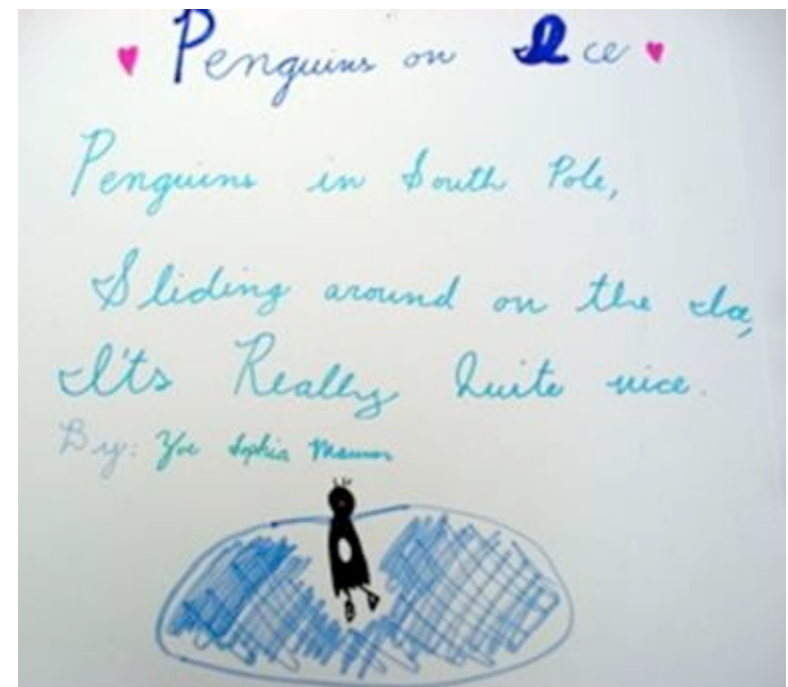 Penguins on Ice
Penguins in South Pole,
Sliding around on the Ice,
It's Really Quite nice.
By: Sophia